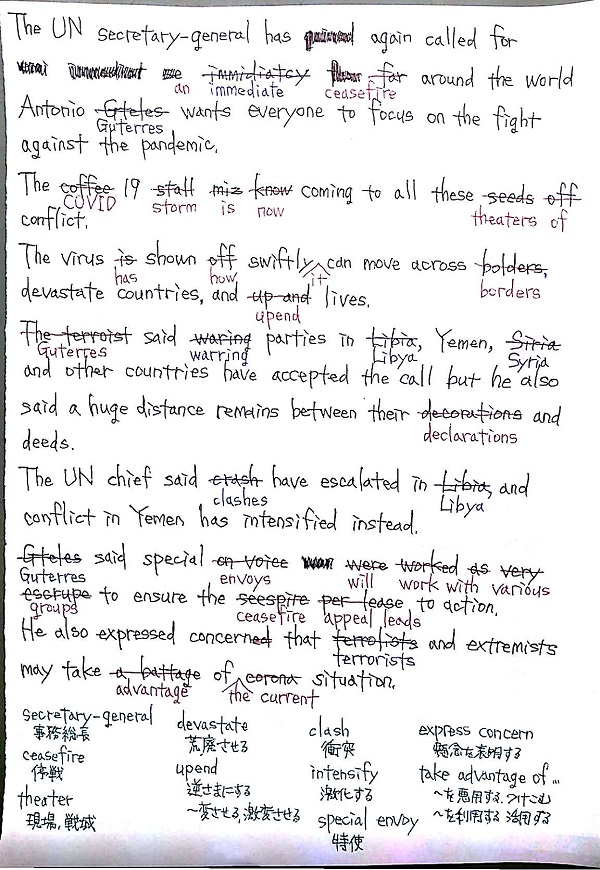 The UN secretary-general has again called for
immidiatcy for around the world
an immediate ceasefire
Antonio Gteles wants everyone to focus on the fight
Guterres
against the pandemic.
The coffee 19 stall miz know coming to all these seeds off
COVID storm is now theaters of
conflict.
The virus is shown off swiftly can move across bolders,
has how it borders
devastate countries, and up and lives.
upend
The terroist said waring parties in Libia, Yemen, Siria
Guterres warring Libya Syria
and other countries have accepted the call but he also
said a huge distance remains between their decorations and
declarations
deeds.
The UN chief said crash have escalated in Libia, and
clashes Libya
conflict in Yemen has intensified instead.
Gteles said special on voice were worked as very
Guterres envoys will work with various
escrupe to ensure the seespire per lease to action.
groups ceasefire appeal leads
He also expressed concerned that terrolists and extremists
terrorists
may take a battage of corona situation.
advantage the current
secretary-general devastate clash express concern
事務総長 荒廃させる 衝突 懸念を表明する
ceasefire upend intensify take advantage of...
停戦 逆さまにする 激化する 〜を悪用する、つけこむ
theater 〜変させる, 激変させる special envoy 〜を利用する 活用する
現場, 戦域 特使